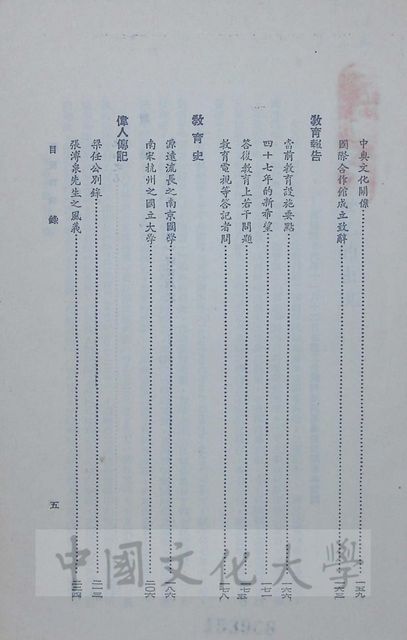 中與文化關係……一五九
國際合作館成立致辭……一六三
教育報告
當前教育設施要點……一六六
四十七年的新希望……一七一
答復教育上若干問題……一七五
教育電視等答記者問……一七八
教育史
源遠流長之南京國學……一八六
南宋杭州之國立大學……二〇六
偉人傳記
梁任公別錄……二一三
張溥泉先生之風義……二二四
目錄
五
中國文化大學